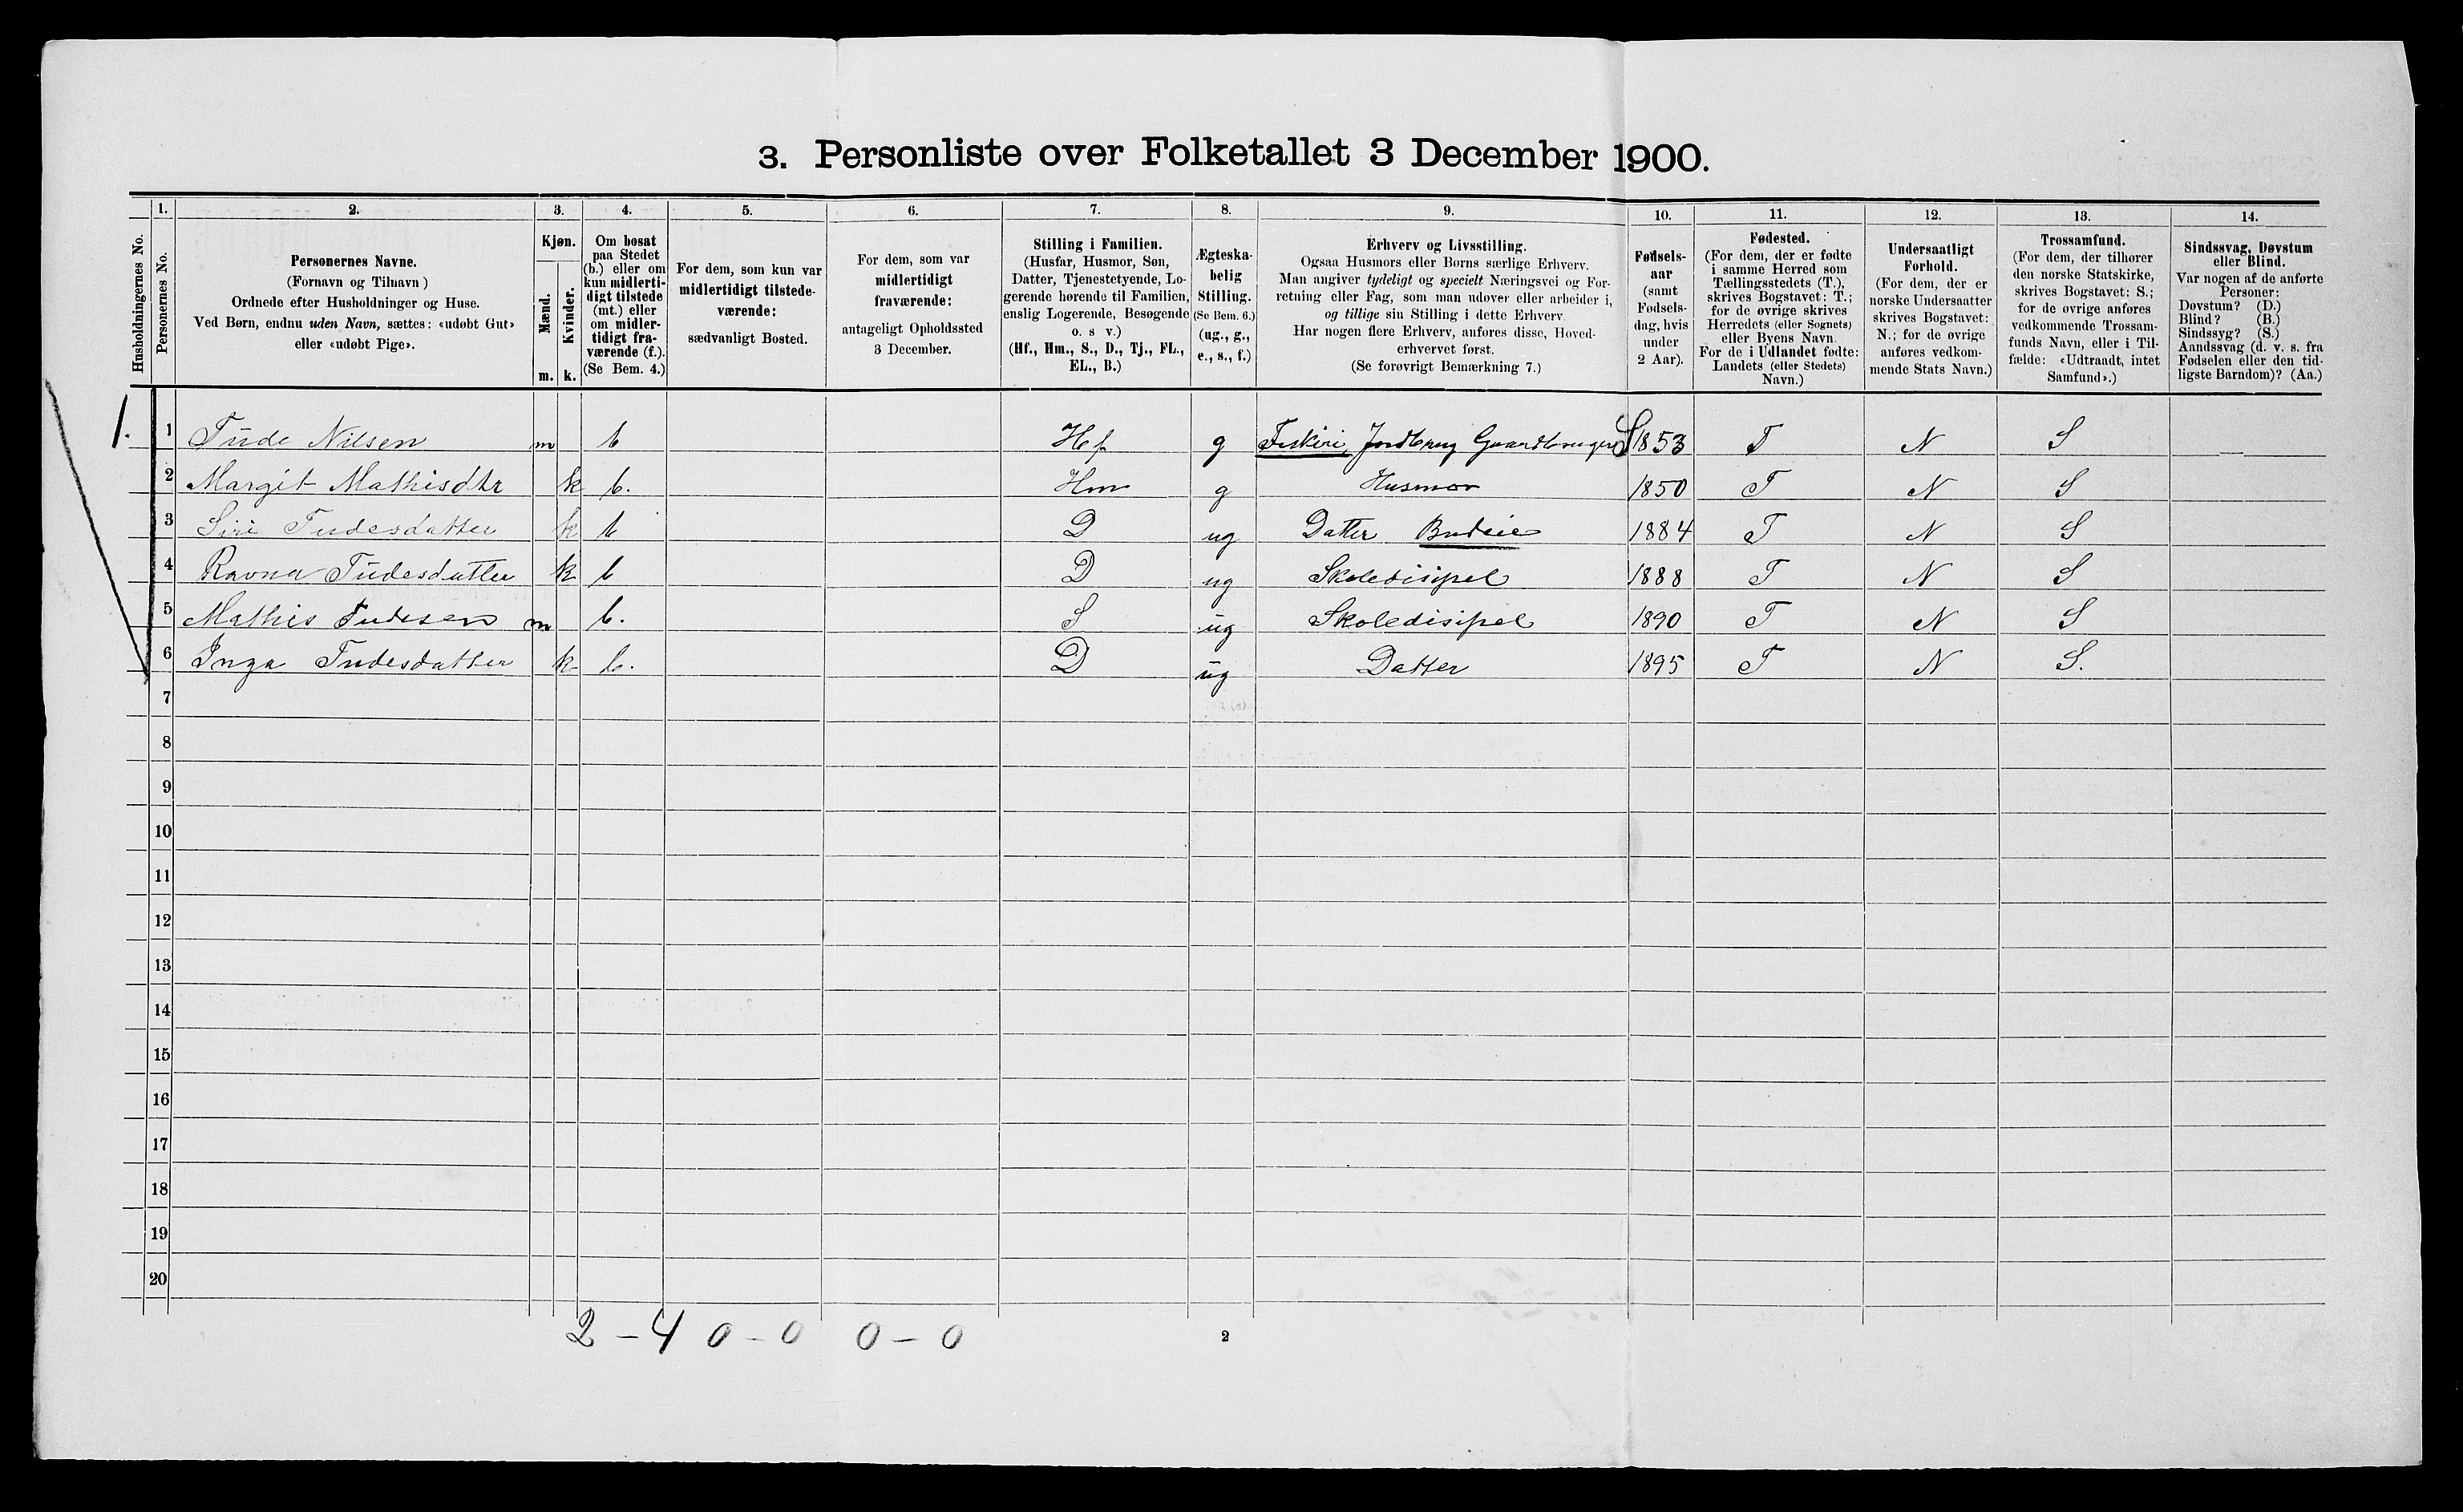 3. Personliste over Folketallet 3 December 1900.
Husholdningernes No.
1.
Personernes No.
2.
Personernes Navne.
(Fornavn og Tilnavn)
Ordnede efter Husholdninger og Huse.
Ved Børn, endnu uden Navn, sættes: «udøbt Gut»
eller «udøbt Pige».
3.
Kjøn.
Mænd.
Kvinder.
m. k.
4.
Om bosat
paa Stedet
(b.) eller om
kun midlerti-
digt tilstede
(mt.) eller
om midler-
tidigt fra-
værende (f.).
(Se Bem. 4.)
5.
For dem, som kun var
midlertidigt tilstede-
værende:
sædvanligt Bosted.
6.
For dem, som var
midlertidigt
fraværende:
antageligt Opholdssted
3 December.
7.
Stilling i Familien.
(Husfar, Husmor, Søn,
Datter, Tjenestetyende, Lo-
gerende hørende til Familien,
enslig Logerende, Besøgende
o. s v.)
(Hf., Hm., S., D., Tj., FL.,
EL., B.)
8.
Ægteska-
belig
Stilling.
(Se Bem. 6.)
(ug., g.,
e., s., f.)
9.
Erhverv og Livsstilling.
Ogsaa Husmors eller Børns særlige Erhverv.
Man angiver tydeligt og specielt Næringsvei og For-
retning eller Fag, som man udøver eller arbeider i,
og tillige sin Stilling i dette Erhverv.
Har nogen flere Erhverv, anføres disse, Hoved-
erhvervet først.
(Se forøvrigt Bemærkning 7.)
10.
Fødsels-
aar
(samt
Fødsels-
dag, hvis
under
2 Aar).
11.
Fødested.
(For dem, der er fødte
i samme Herred som
Tællingsstedets (T.),
skrives Bogstavet: T.;
for de øvrige skrives
Herredets (eller Sognets)
eller Byens Navn.
For de i Udlandet fødte:
Landets (eller Stedets)
Navn.)
12.
Undersaatligt
Forhold.
(For dem, der er
norske Undersaatter
skrives Bogstavet:
N.; for de øvrige
anføres vedkom-
mende Stats Navn.)
13.
Trossamfund.
(For dem, der tilhører
den norske Statskirke,
skrives Bogstavet: S.;
for de øvrige anføres
vedkommende Trossam-
funds Navn, eller i Til-
fælde: «Udtraadt, intet
Samfund».)
14.
Sindssvag, Døvstum
eller Blind.
Var nogen af de anførte
Personer:
Døvstum? (D.)
Blind? (B.)
Sindssyg? (S.)
Aandssvag (d. v. s. fra
Fødselen eller den tid-
ligste Barndom)? (Aa.)
1. 1 Tude Nilsen m b Hf g Fiskeri, Jordbrug Gaardbruger S 1853 T N S
2 Margit Mathisdtr k b. Hm g Husmor 1850 T N S
3 Siri Tudesdatter k b D ug Datter Budeie 1884 T N S
4 Ravna Tudesdatter k b D ug Skoledisipel 1888 T N S
5 Mathis Tudesen m b. S ug Skoledisipel 1890 T N S
6 Inga Tudesdatter k b. D ug Datter 1895 T N S.
7
8
9
10
11
12
13
14
15
16
17
18
19
20
2 - 4 0 - 0 0 - 0
2